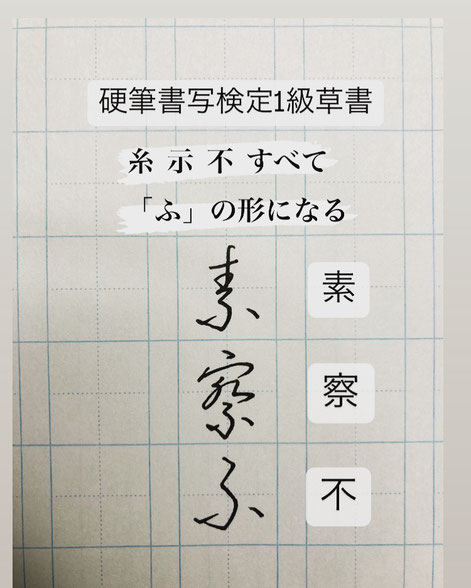 硬筆書写検定1級草書
糸 示 不 すべて
「ふ」の形になる
素 素
察 察
不 不